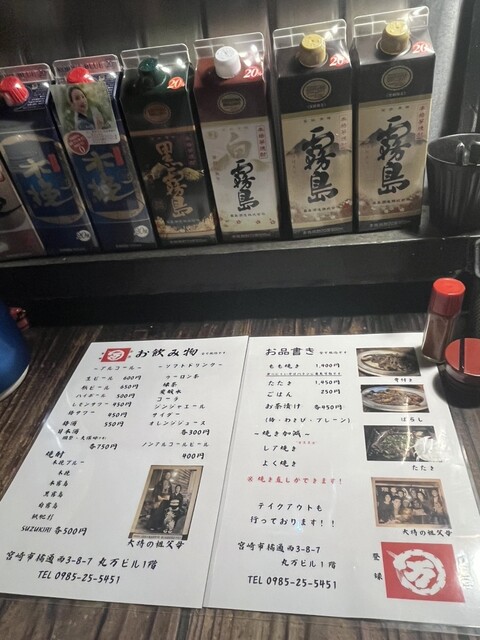 木挽
木挽
黒霧島
20
白霧島
20%
霧島
霧島
お飲み物
~アルコール~
生ビール 600円
瓶ビール 650円
ハイボール 500円
レモンサワー 450円
梅サワー 450円
梅酒 550円
日本酒
各750円
焼酎
木挽ブルー
木挽
赤霧島
黒霧島
白霧島
SUZUKIRI 各500円
~ソフトドリンク~
ウーロン茶
緑茶
炭酸水
コーラ
ジンジャエール
サイダー
オレンジジュース
各300円
ノンアルコールビール
400円
大将の祖父母
宮崎市橘通西3-8-7 丸万ビル1階
TEL 0985-25-5451
お品書き
もも焼き 1,400円
たたき 1,450円
ごはん 250円
お茶漬け 各450円
(梅・わさび・プレーン)
~焼き加減~
レア焼き
よく焼き
※焼き直しができます!
テイクアウトも
行っております!!
骨付き
ばらし
たたき
大将の祖父母
宮崎市橘通西3-8-7
丸万ビル1階
TEL 0985-25-5451
登録
万